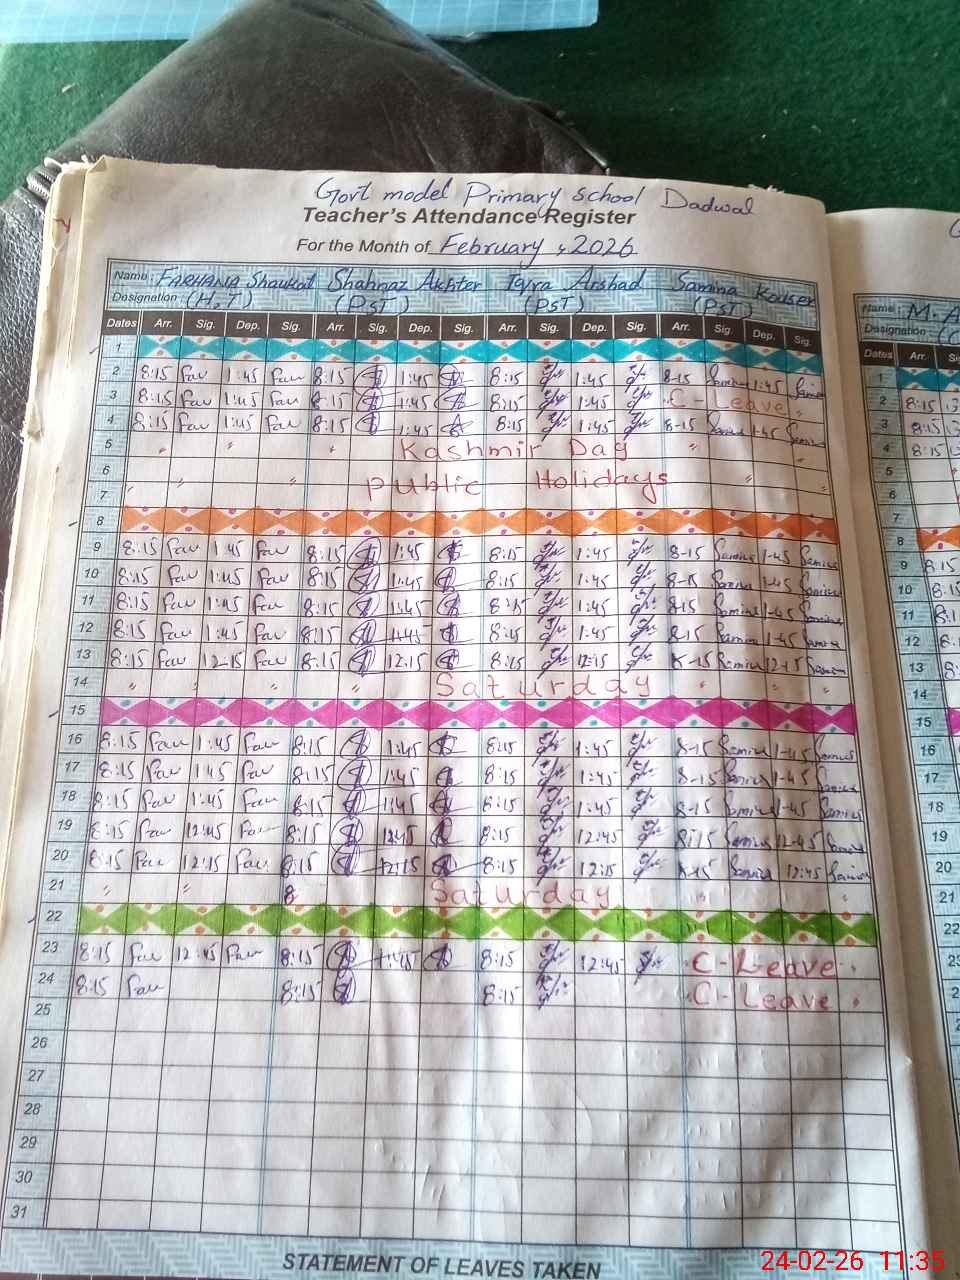 Govt model Primary school Dadwal
Teacher's Attendance Register
For the Month of February, 2026
Name: FARHANA Shaukat Shahnaz Akhter Iqra Arshad Samina Kouser
Designation (H,T) (PST) (PST) (PST)
Dates Arr. Sig. Dep. Sig. Arr. Sig. Dep. Sig. Arr. Sig. Dep. Sig. Arr. Sig. Dep. Sig.
1
2 8:15 Far 1:45 Far 8:15 1:45 8:15 1:45 8-15 Samina 1:45
3 8:15 Far 1:45 Far 8:15 1:45 8:15 1:45 C-Leave
4 8:15 Far 1:45 Far 8:15 1:45 8:15 1:45 8-15 Samina 1-45 Samina
5 Kashmir Day
6
7 Public Holidays
8
9 8:15 Far 1:45 Far 8:15 1:45 8:15 1:45 8-15 Samina 1-45 Samina
10 8:15 Far 1:45 Far 8:15 1:45 8:15 1:45 8-15 Samina 1-45 Samina
11 8:15 Far 1:45 Far 8:15 1:45 8:15 1:45 8-15 Samina 1-45 Samina
12 8:15 Far 1:45 Far 8:15 1:45 8:15 1:45 8-15 Samina 1-45 Samina
13 8:15 Far 12-15 Far 8:15 12:15 8:15 12:15 8-15 Samina 12-15 Samina
14 Saturday
15
16 8:15 Far 1:45 Far 8:15 1:45 8:15 1:45 8-15 Samina 1-45 Samina
17 8:15 Far 1:45 Far 8:15 1:45 8:15 1:45 8-15 Samina 1-45 Samina
18 8:15 Far 1:45 Far 8:15 1:45 8:15 1:45 8-15 Samina 1-45 Samina
19 8:15 Far 12:45 Far 8:15 12:45 8:15 12:45 8:15 Samina 12-45 Samina
20 8:15 Far 12:15 Far 8:15 12:15 8:15 12:15 8-15 Samina 12:45 Samina
21 8 Saturday
22
23 8:15 Far 12:45 Far 8:15 1:45 8:15 12:45 C-Leave
24 8:15 Far 8:15 8:15 C-Leave
25
26
27
28
29
30
31
STATEMENT OF LEAVES TAKEN
Name: M.A
Designation
Dates Arr.
1
2 8:15
3 8:15
4 8:15
5
6
7
8
9 8:15
10
11
12
13
14
15
16
17
18
19
20
21
22
24-02-26 11:35